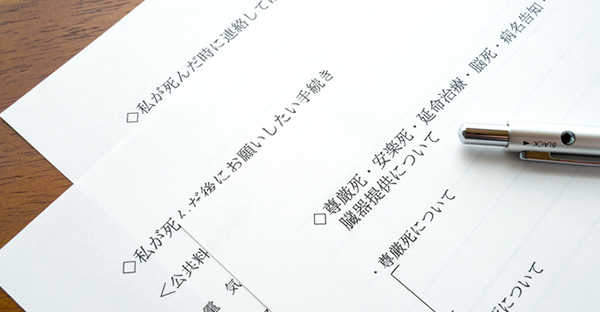 ◇私が死んだ時に連絡して
◇私が死んだ後にお願いしたい手続き
<公共料
電気
◇尊厳死・安楽死・延命治療・脳死・病名告知・
臓器提供について
・尊厳死について
死について
BLACK